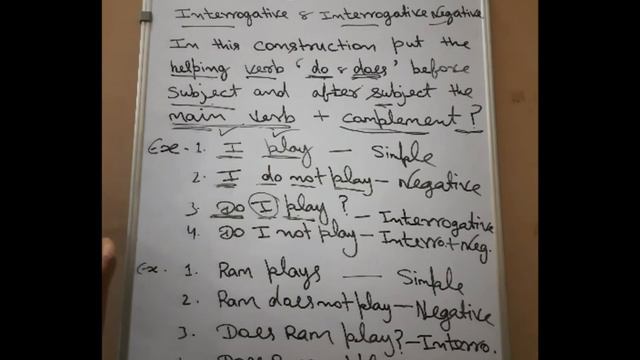 Interrogative & Interrogative Negative
In this construction put the
helping verb 'do & does' before
subject and after subject the
main verb + complement?
Ex - 1. I play — Simple
2. I do not play — Negative
3. Do I play? — Interrogative
4. Do I not play — Interro. + Neg.
Ex. 1. Ram plays — Simple
2. Ram does not play — Negative
3. Does Ram play? — Interro.